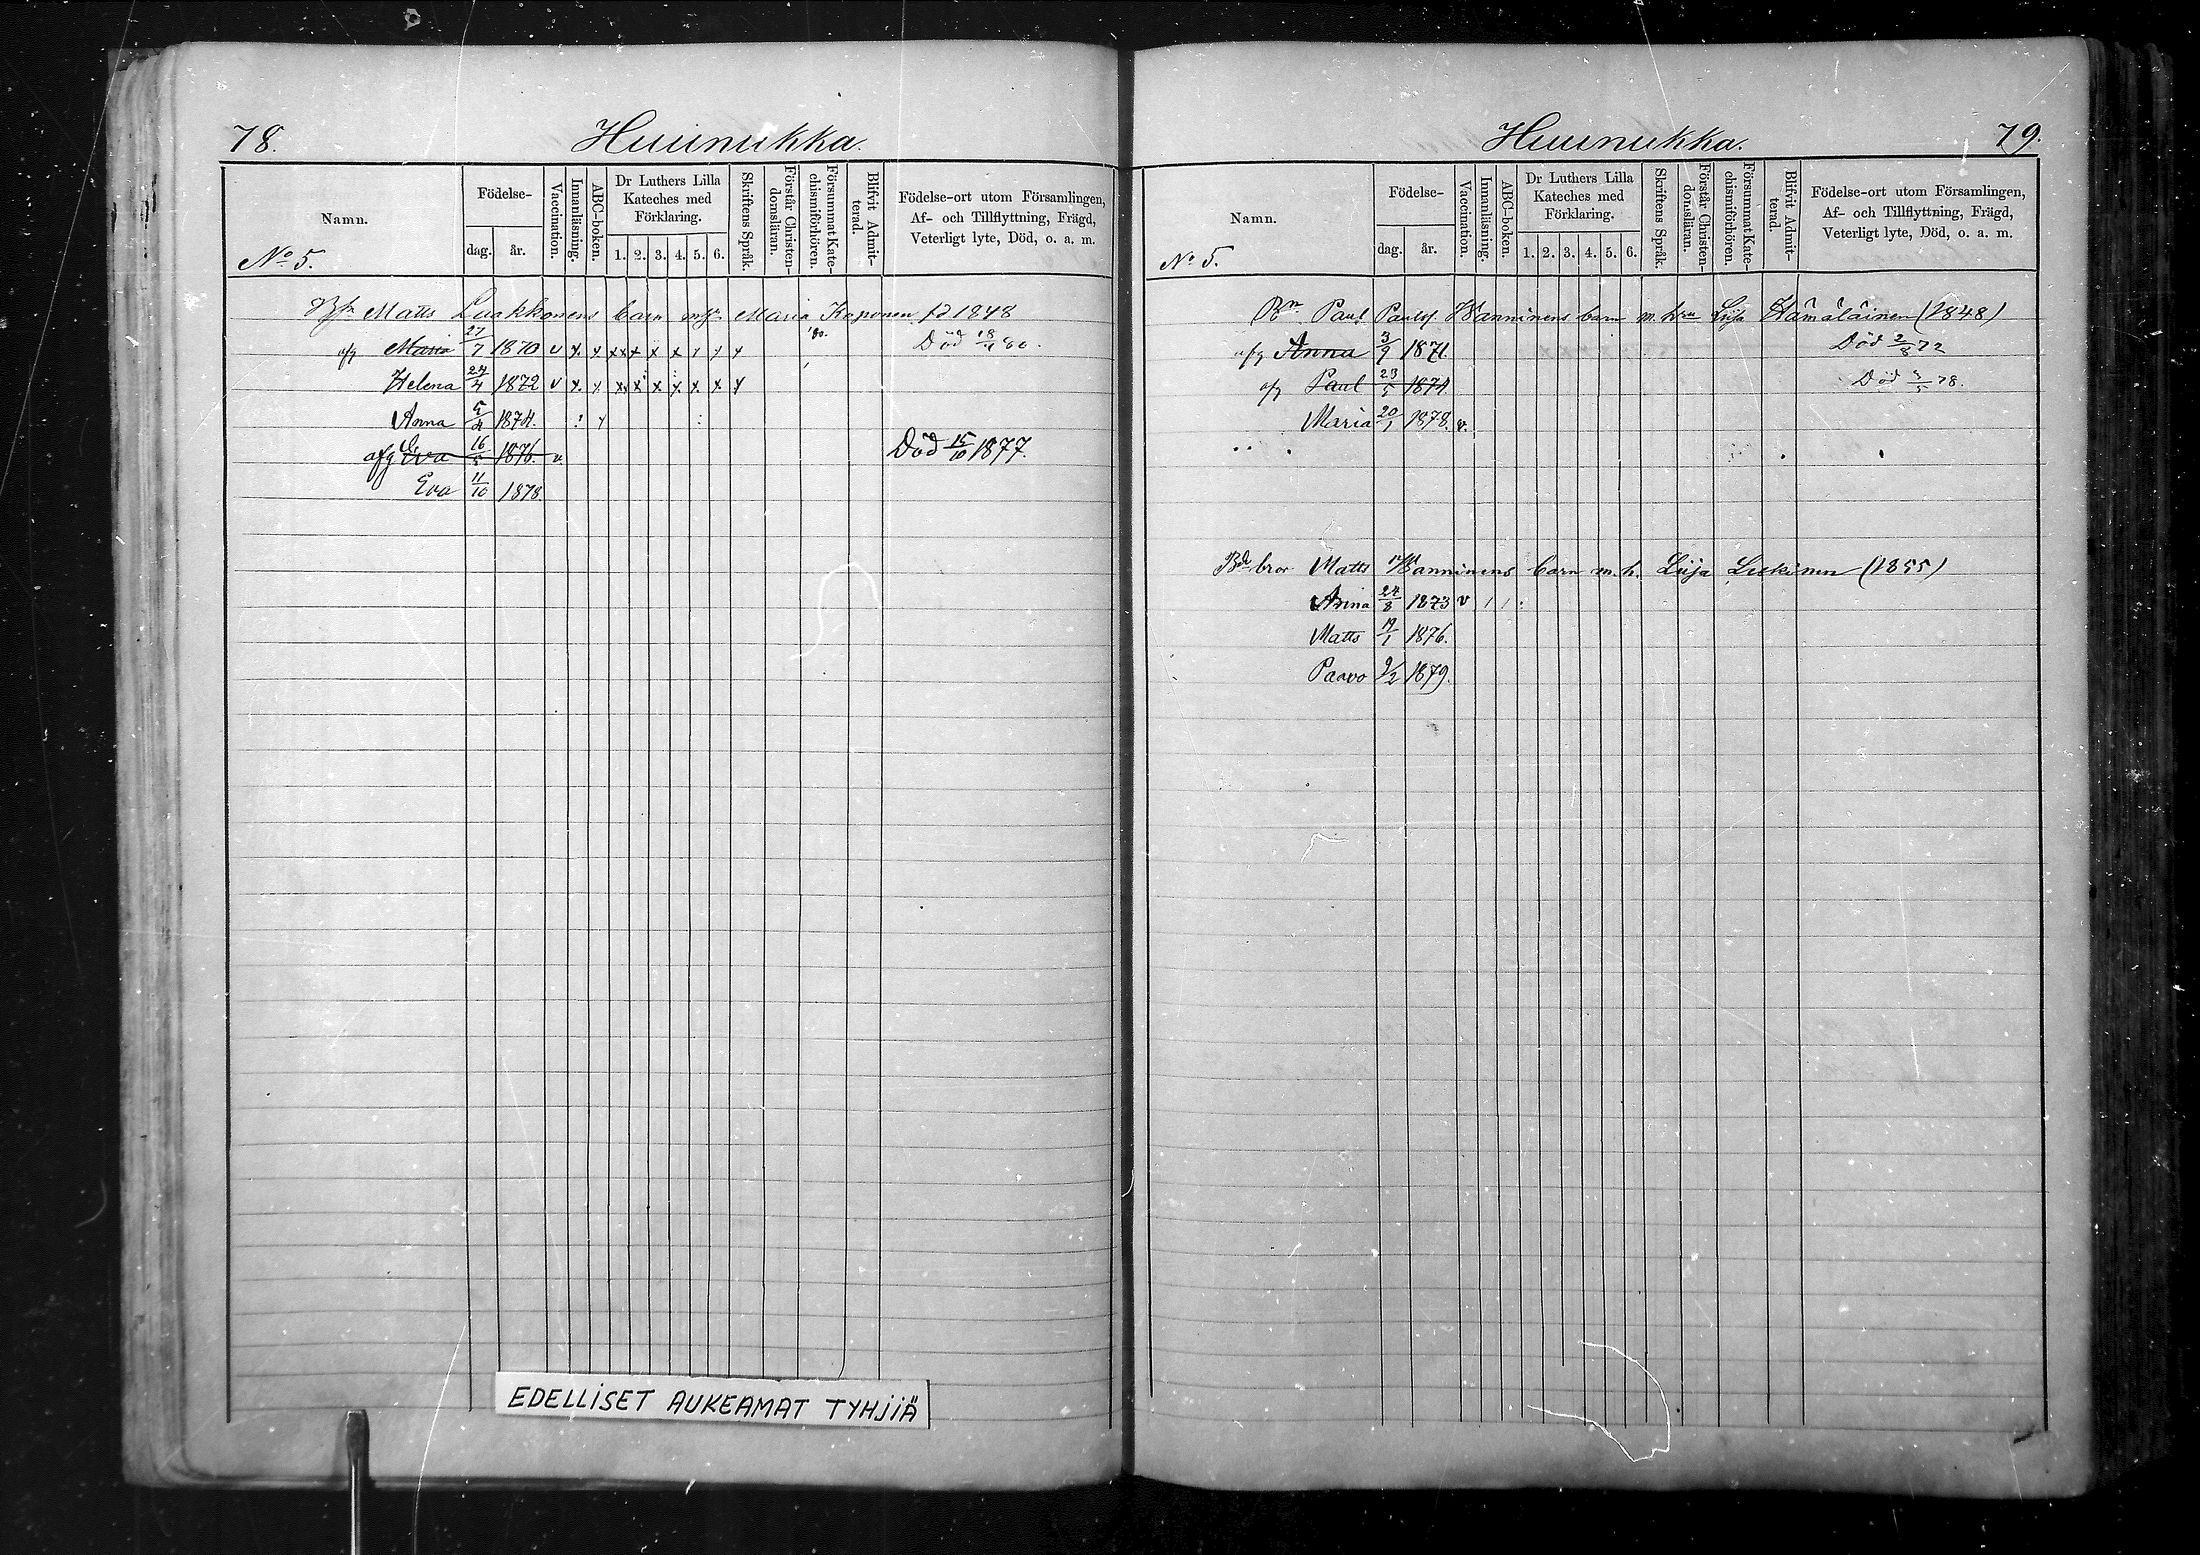 78.
Huunukka.
Namn.
No 5.
Födelse-
dag.
år.
Vaccination.
Innanläsning.
ABC-boken.
Dr Luthers Lilla
Kateches med
Förklaring.
1. 2. 3. 4. 5. 6.
Skriftens Språk.
Förstår Christen-
domsläran.
Försummat Kate-
chismiförhören.
Blifvit Admit-
terad.
Födelse-ort utom Församlingen,
Af- och Tillflyttning, Frägd,
Veterligt lyte, Död, o. a. m.
Matts Laakkonens barn Maria Kaponen fd 1848
afg Maria 27/7 1870 v x. x x x x x x x x x Död
Helena 24/4 1872 v x. x x x x x x x x
Anna 5/4 1874.
afg Eva 16/5 1876. v. Död 15/10 1877.
Eva 11/10 1878.
EDELLISET AUKEAMAT TYHJIÄ
Huunukka.
79.
Namn.
No 5.
Födelse-
dag.
år.
Vaccination.
Innanläsning.
ABC-boken.
Dr Luthers Lilla
Kateches med
Förklaring.
1. 2. 3. 4. 5. 6.
Skriftens Språk.
Förstår Christen-
domsläran.
Försummat Kate-
chismiförhören.
Blifvit Admit-
terad.
Födelse-ort utom Församlingen,
Af- och Tillflyttning, Frägd,
Veterligt lyte, Död, o. a. m.
Paul Paulsf Hanninens barn m. hru Liisa Hämäläinen (1848)
afg Anna 3/9 1871. Död 2/8 72
afg Paul 23/5 1874. Död 78.
Maria 20/1 1878. v.
bror Matts Hanninens barn m. h. Liisa Leskinen (1855)
Anna 24/8 1873 v / /
Matts 19/1 1876.
Paavo 9/2 1879.